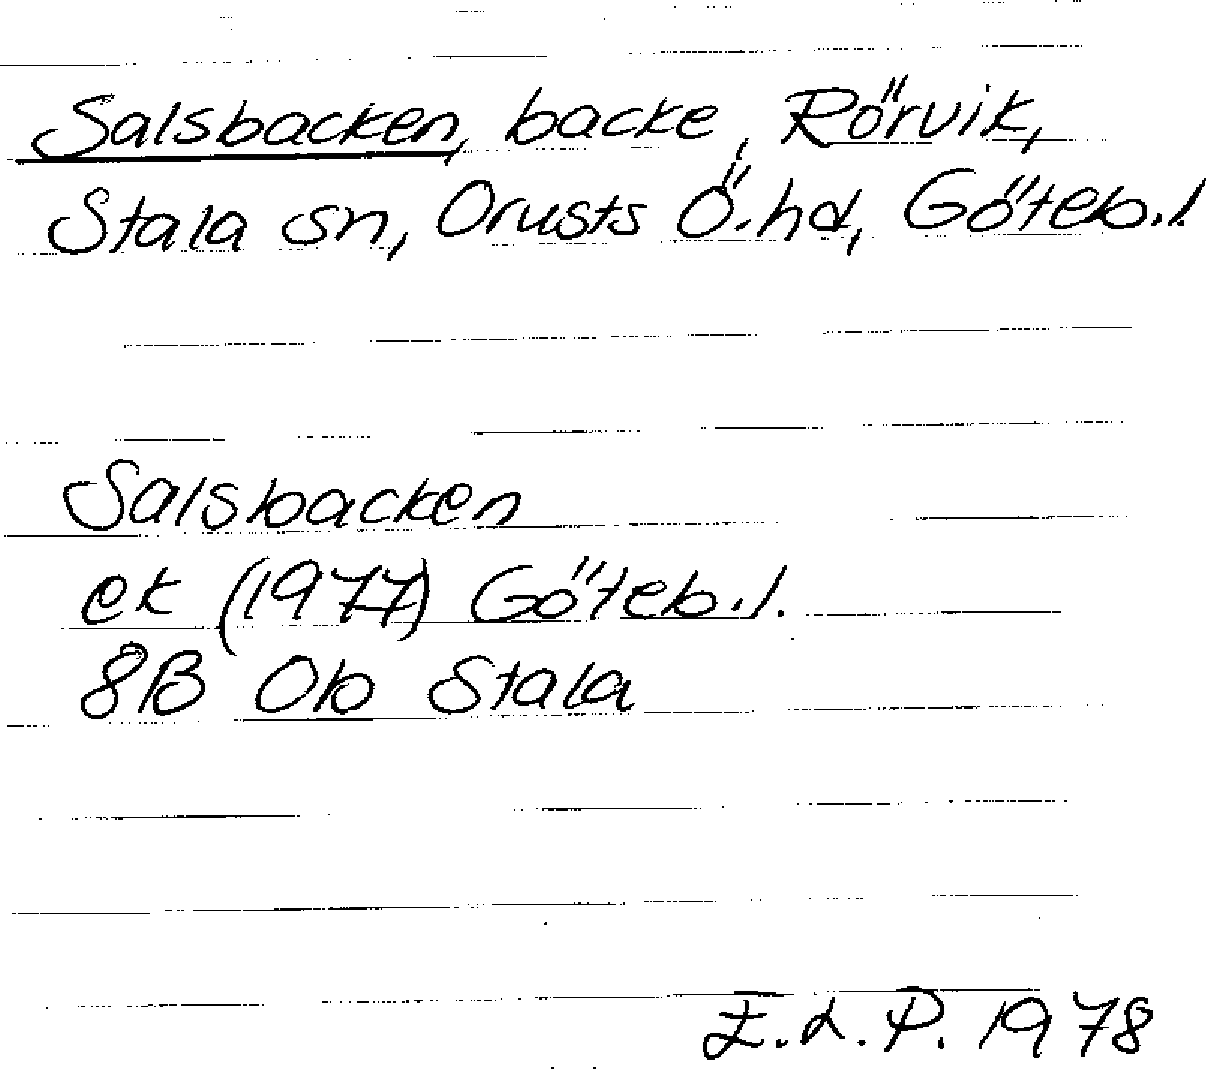 Salsbacken, backe, Rörvik,
Stala sn, Orusts Ö.hd, Göteb.l
Salsbacken
ek (1977) Göteb.l.
8B 0b Stala
E.L.P. 1978